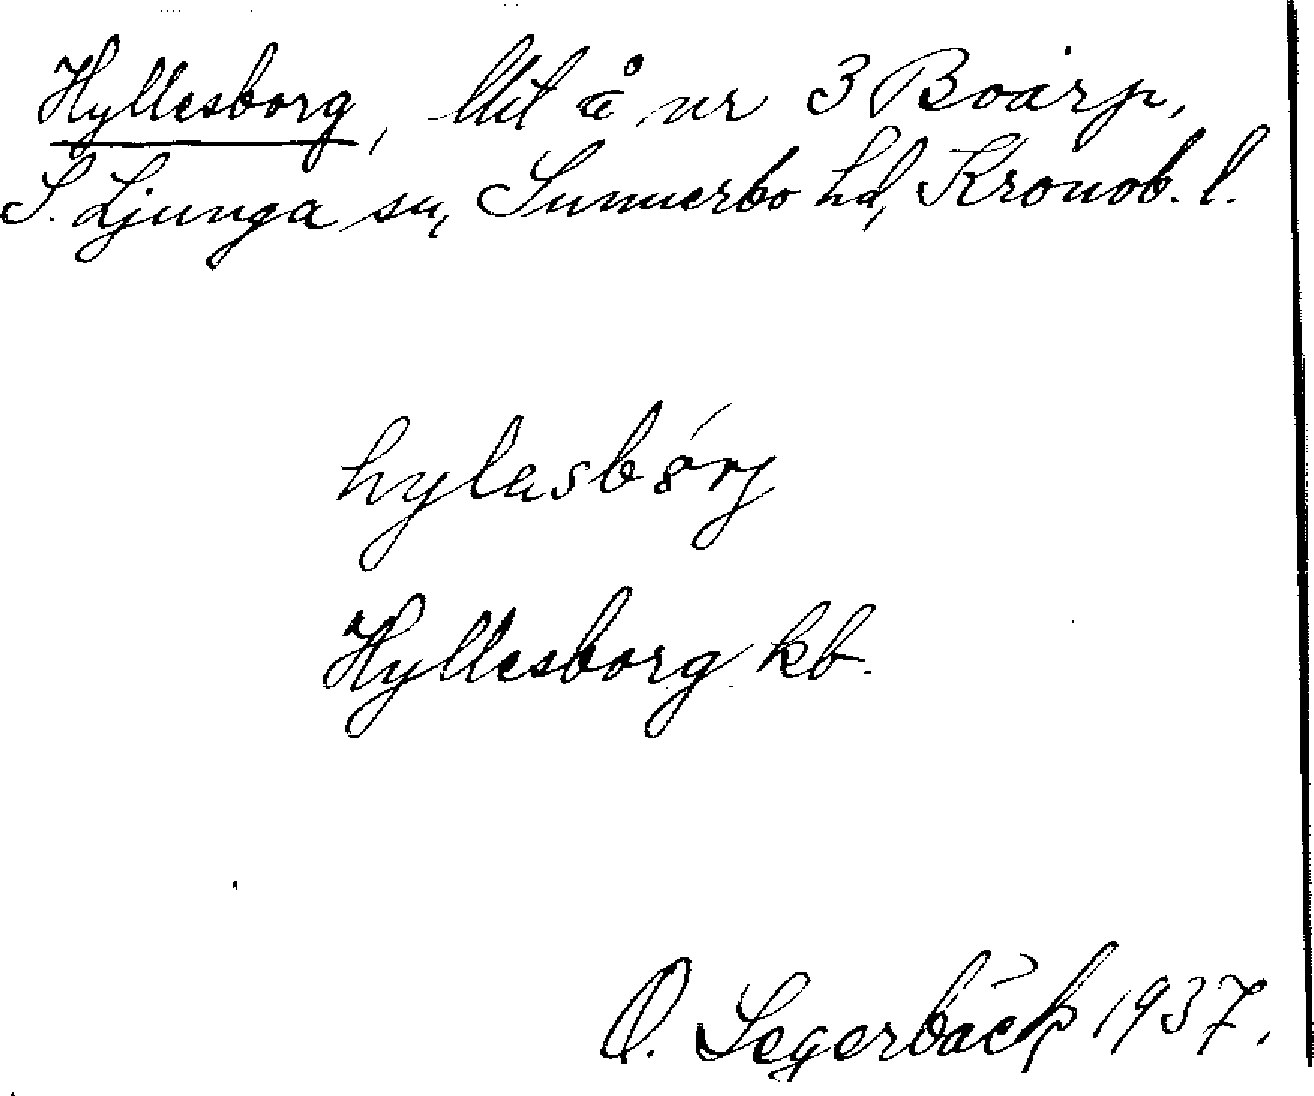 Hyllesborg, lht å nr 3 Boarp,
S. Ljunga sn, Sunnerbo hd, Kronob. l.
hylasbórj
Hyllesborg kb.
O. Segerbäck 1937.